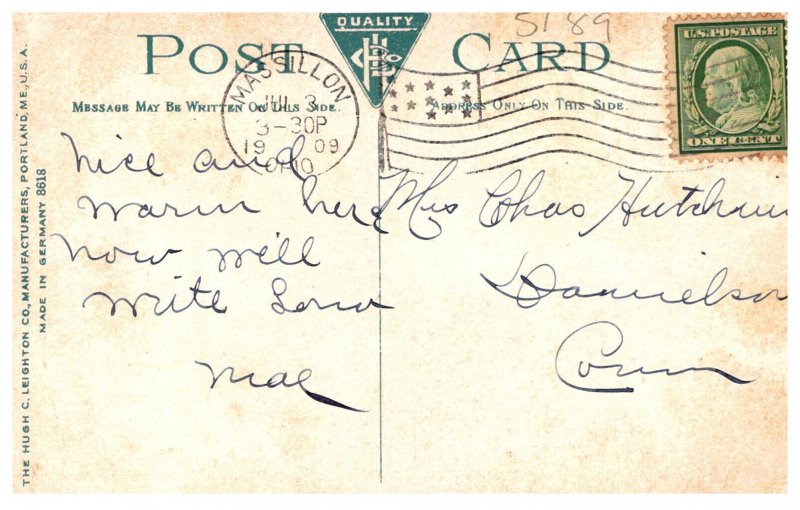 5189
QUALITY
POST CARD
U.S. POSTAGE
ONE CENT
MASSILLON
JUL 3
3-30P
1909
OHIO
MESSAGE MAY BE WRITTEN ON THIS SIDE.
ADDRESS ONLY ON THIS SIDE.
Nice and
warm here
now will
write soon
Mae
Mrs Chas Hutchins
Danielson
Conn
THE HUGH C. LEIGHTON CO., MANUFACTURERS, PORTLAND, ME., U.S.A.
MADE IN GERMANY 8618